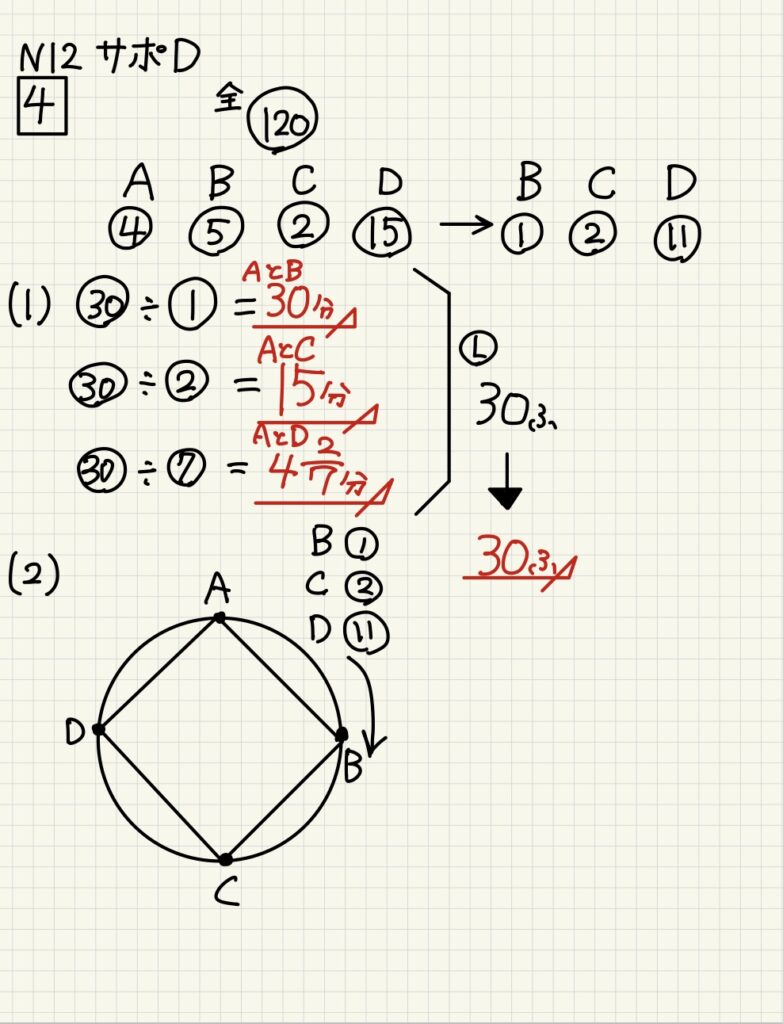 N12 サポD
4
全 120
A B C D B C D
4 5 2 15 → 1 2 11
AとB
(1) 30 ÷ 1 = 30分
AとC
30 ÷ 2 = 15分
AとD
30 ÷ 7 = 4 2/7分
L
30ふん
30ふん
(2)
B 1
C 2
D 11
A
D
B
C